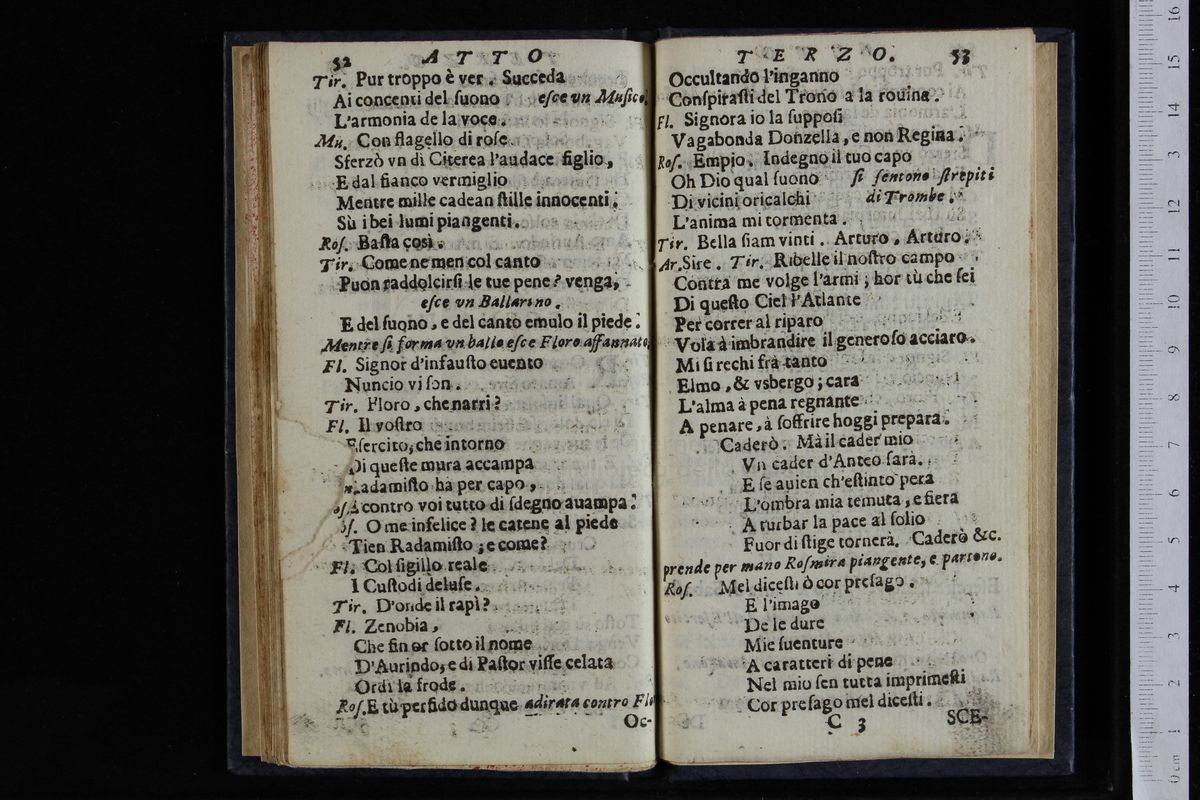 52 ATTO
Tir. Pur troppo è ver. Succeda
Ai concenti del ſuono eſce vn Muſico.
L'armonia de la voce.
Mu. Con flagello di roſe
Sferzò vn dì Citerea l'audace figlio,
E dal fianco vermiglio
Mentre mille cadean ſtille innocenti.
Sù i bei lumi piangenti.
Roſ. Baſta così.
Tir. Come ne men col canto
Puon raddolcirſi le tue pene? venga,
eſce vn Ballarino.
E del ſuono, e del canto emulo il piede.
Mentre ſi forma vn ballo eſce Floro affannato,
Fl. Signor d'infauſto euento
Nuncio vi ſon.
Tir. Floro, che narri?
Fl. Il voſtro
Eſercito, che intorno
Di queſte mura accampa
Radamiſto hà per capo,
contro voi tutto di ſdegno auampa.
oſ. O me infelice? le catene al piede
Tien Radamiſto; e come?
Fl. Col ſigillo reale
I Cuſtodi deluſe.
Tir. D'onde il rapì?
Fl. Zenobia,
Che fin or ſotto il nome
D'Aurindo, e di Paſtor viſſe celata
Ordì la frode.
Roſ. E tù perfido dunque adirata contro Flo
Oc-
TERZO. 53
Occultando l'inganno
Conſpiraſti del Trono a la rouina.
Fl. Signora io la ſuppoſi
Vagabonda Donzella, e non Regina.
Roſ. Empio. Indegno il tuo capo
Oh Dio qual ſuono ſi ſentono ſtrepiti
Di vicini oricalchi di Trombe.
L'anima mi tormenta.
Tir. Bella ſiam vinti. Arturo, Arturo.
Ar. Sire. Tir. Ribelle il noſtro campo
Contra me volge l'armi; hor tù che ſei
Di queſto Ciel l'Atlante
Per correr al riparo
Vola à imbrandire il generoſo acciaro.
Mi ſi rechi frà tanto
Elmo, & vsbergo; cara
L'alma à pena regnante
A penare, à ſoffrire hoggi prepara.
Caderò. Mà il cader mio
Vn cader d'Anteo ſarà.
E ſe auien ch'eſtinto pera
L'ombra mia temuta, e fiera
A turbar la pace al ſolio
Fuor di ſtige tornerà. Caderò &c.
prende per mano Roſmira piangente, e partono.
Roſ. Mel diceſti ò cor preſago.
E l'imago
De le dure
Mie ſuenture
A caratteri di pene
Nel mio ſen tutta imprimeſti
Cor preſago mel diceſti.
C 3 SCE-